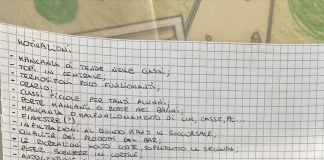 MOTIVAZIONI:
- MANCANZA DI TENDE NELLE CLASSI;
- TOPI IN CENTRALE;
- TERMOSIFONI POCO FUNZIONANTI;
- ORARIO;
- CLASSI PICCOLE PER TANTI ALUNNI;
- PORTE MANCANTI O ROTTE NEI BAGNI;
- MANCANZA O MALFUNZIONAMENTO DI LIM, CASSE, PC
- FINESTRE (!);
- INFILTRAZIONI AL QUINTO PIANO IN SUCCURSALE;
- QUALITÀ DEI PRODOTTI DEL BAR;
- LE RICREAZIONI MOLTO CORTE, SOPRATTUTTO IN SECONDA;
- IN CORTILE